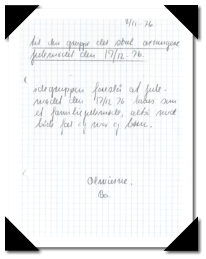 4/11-76
til den gruppe der skal arrangere
julemødet den 17/12-76.
gruppen foreslår at jule-
mødet den 17/12 76 bliver som
et familiejulemøde, altså med
både far og mor og børn.
Bo.